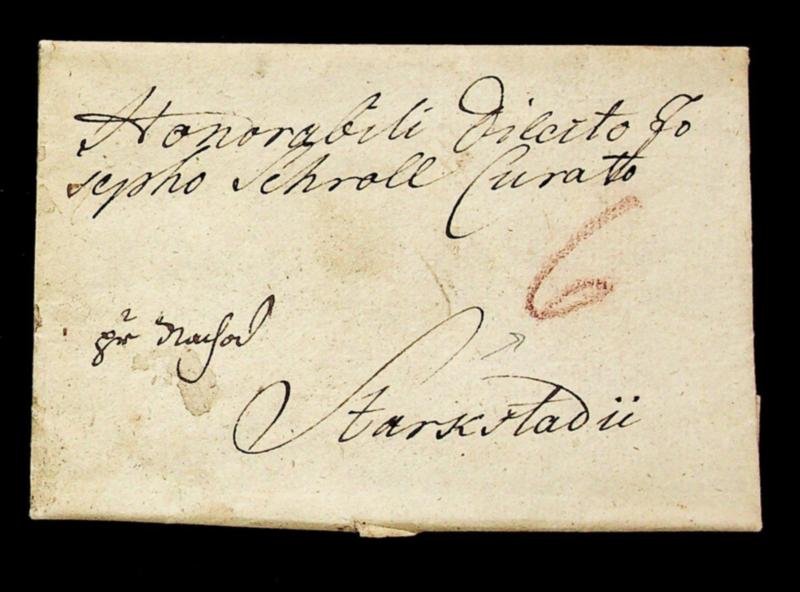 Honorabili Dilecto Jo
sepho Schroll Curatto
6
pr Nachod
Starkstadii